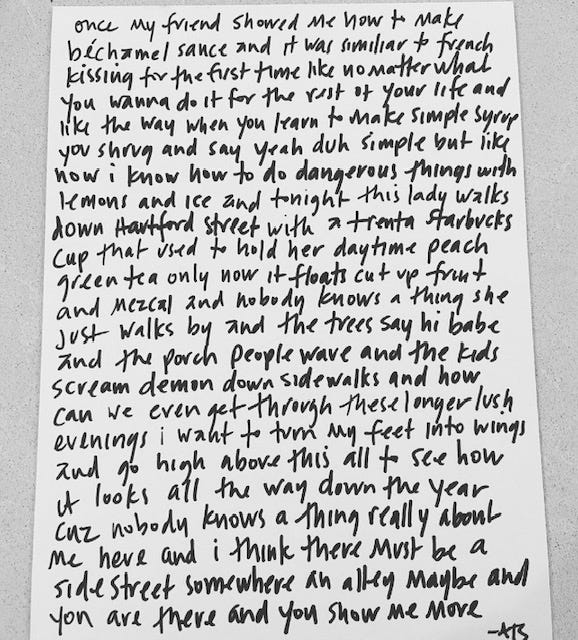 once my friend showed me how to make
béchamel sauce and it was similiar to french
kissing for the first time like no matter what
you wanna do it for the rest of your life and
like the way when you learn to make simple syrup
you shrug and say yeah duh simple but like
now i know how to do dangerous things with
lemons and ice and tonight this lady walks
down Hartford street with a trenta starbucks
cup that used to hold her daytime peach
green tea only now it floats cut up fruit
and mezcal and nobody knows a thing she
just walks by and the trees say hi babe
and the porch people wave and the kids
scream demon down sidewalks and how
can we even get through these longer lush
evenings i want to turn my feet into wings
and go high above this all to see how
it looks all the way down the year
cuz nobody knows a thing really about
me here and i think there must be a
side street somewhere an alley maybe and
you are there and you show me more